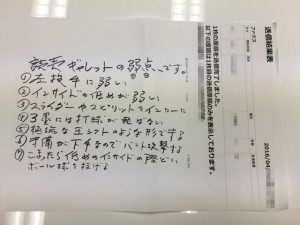 読売ギャレットの弱点です。
①左投手に弱い
②インサイドの低めが弱い
③スライダーやスピリットインシュートに
④3塁には打球が飛ばない
⑤極端な王シフトのような形でする
⑥守備が下手なのでバント攻撃する
⑦こまったら低めのインサイドの際どい
ボール球を投げる
送信結果表
ファクス
1枚の原稿を送信完了しました。
以下の原稿は1枚目の送信原稿のみを表示しております。
2016/04